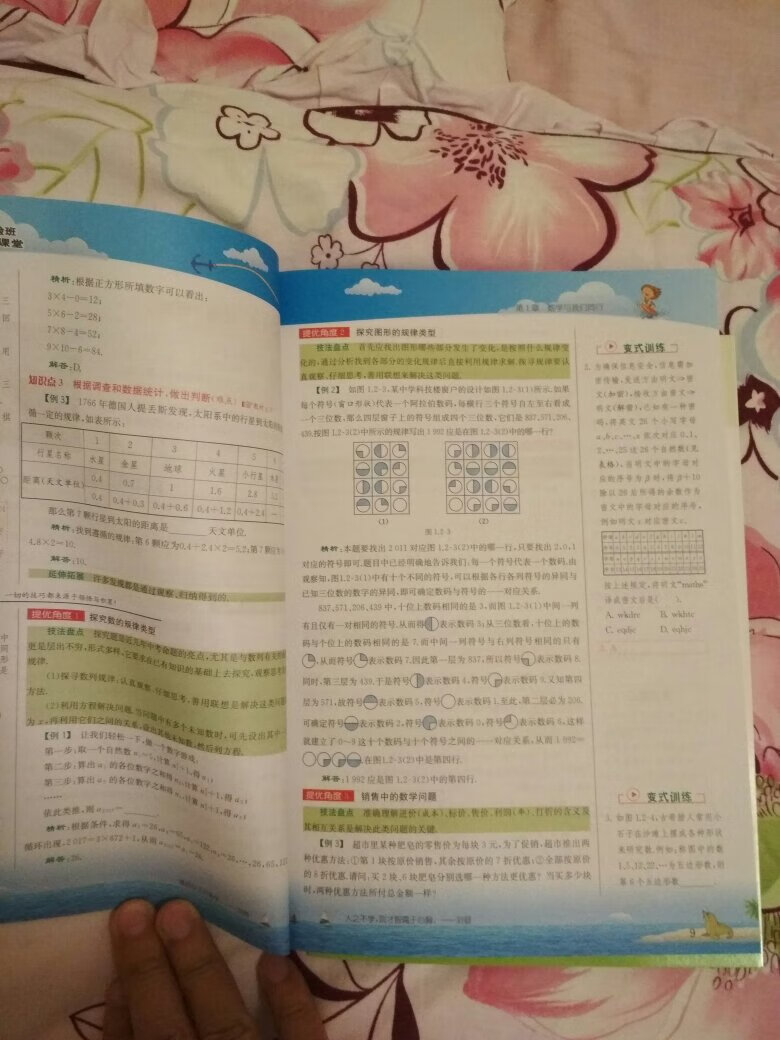 课堂
精析:根据正方形所填数字可以看出:
3×4-0=12;
5×6-2=28;
7×8-4=52;
9×10-6=84.
解答:D.
知识点3 根据调查和数据统计,做出判断(难点)
【例3】 1766年德国人提丢斯发现,太阳系中的行星到太阳的
循一定的规律,如表所示:
颗次 1 2 3 4 5
行星名称 水星 金星 地球 火星 小行星
距离(天文单位) 0.4 0.7 1 1.6 2.8
0.4 0.4+0.3 0.4+0.6 0.4+1.2 0.4+2.4
那么第7颗行星到太阳的距离是 天文单位.
精析:找到遵循的规律:第6颗应为0.4+2.4×2=5.2;第7颗应为
4.8×2=10.
解答:10.
延伸拓展 许多发现都是通过观察、归纳得到的.
提优角度1 探究数的规律类型
技法盘点 探究题是近几年中考命题的亮点,尤其是与数列有关的
更是层出不穷,形式多样,它要求在已有知识的基础上去探究,观察思考
规律.
(1)探寻数列规律:认真观察、仔细思考,善用联想是解决这类问题
方法.
(2)利用方程解决问题.当问题中有多个未知数时,可先设出其中一
为x,再利用它们之间的关系,设出其他未知数,然后列方程.
【例1】 让我们轻松一下,做一个数字游戏:
第一步:取一个自然数
第二步:算出a₁的各位数字之和得n₂,计算n₂²+1,得a₂;
第三步:算出a₂的各位数字之和得n₃,计算n₃²+1,得a₃;
……
依此类推,则
精析:根据条件,求得a₁=26,a₂=65,a₃=122,a₄=26,…,26,65,122
循环出现,2017=3×672+1,从而
解答:26.
第1章 数学与我们同行
提优角度2 探究图形的规律类型
技法盘点 首先应找出图形哪些部分发生了变化,是按照什么规律变
化的,通过分析找到各部分的变化规律后直接利用规律求解.探寻规律要认
真观察、仔细思考,善用联想来解决这类问题.
【例2】 如图1.2-3,某中学科技楼窗户的设计如图1.2-3(1)所示.如果
每个符号(窗口形状)代表一个阿拉伯数码,每横行三个符号自左至右看成
一个三位数,那么四层窗子上的符号组成四个三位数,它们是837,571,206,
439.按图1.2-3(2)中所示的规律写出1992应是在图1.2-3(2)中的哪一行?
(1) (2)
图1.2-3
精析:本题要找出2011对应图1.2-3(2)中的哪一行,只要找出2,0,1
对应的符号即可.题目中已经明确地告诉我们,每一个符号代表一个数码,由
观察知,图1.2-3(1)中有十个不同的符号,可以根据各行各列符号的异同与
已知三位数的数字的异同,即可确定数码与符号的一一对应关系.
837,571,206,439中,十位上数码相同的是3,而图1.2-3(1)中间一列
有且仅有一对相同的符号,从而得 表示数码3;从三位数看,十位上的数
码与个位上的数码相同的是7,而中间一列符号与右列符号相同的只有
,从而符号 表示数码7,因此第一层为837,所以符号 表示数码8.
同时,第三层为439,于是符号 表示数码4,符号 表示数码9.又知第四
层为571,故符号 表示数码5,符号 表示数码1.至此,第二层必为206.
可确定符号 表示数码2,符号 表示数码0,符号 表示数码6,这样
就建立了0~9这十个数码与十个符号之间的一一对应关系,从而1992=
,在图1.2-3(2)中是第四行.
解答:1992应是图1.2-3(2)中的第四行.
提优角度3 销售中的数学问题
技法盘点 准确理解进价(成本)、标价、售价、利润(率)、打折的含义及
其相互关系是解决此类问题的关键.
【例3】 超市里某种肥皂的零售价为每块3元,为了促销,超市推出两
种优惠方法:①第1块按原价销售,其余按原价的7折优惠;②全部按原价
的8折优惠.请问:买2块、6块肥皂分别选哪一种方法更优惠?当买多少块
时,两种优惠方法所付总金额一样?
人之不学,犹才智蔑于心胸.——刘昼
变式训练
2.为确保信息安全,信息需加
密传输,发送方由明文⇒密
文(加密),接收方由密文⇒
明文(解密).已知有一种密
码,将英文26个小写字母
a,b,c,…,z依次对应0,1,
2,…,25这26个自然数(见
表格).当明文中的字母对
应的序号为β时,将β+10
除以26后所得的余数作为
密文中的字母对应的序号,
例如明文s对应密文c.
按上述规定,将明文“maths”
译成密文后是( ).
A. wkdrc B. wkhtc
C. eqdjc D. eqhjc
变式训练
3.如图1.2-4,古希腊人常用小
石子在沙滩上摆成各种形状
来研究数,例如:称图中的数
1,5,12,22,…为五边形数,则
第6个五边形数
9